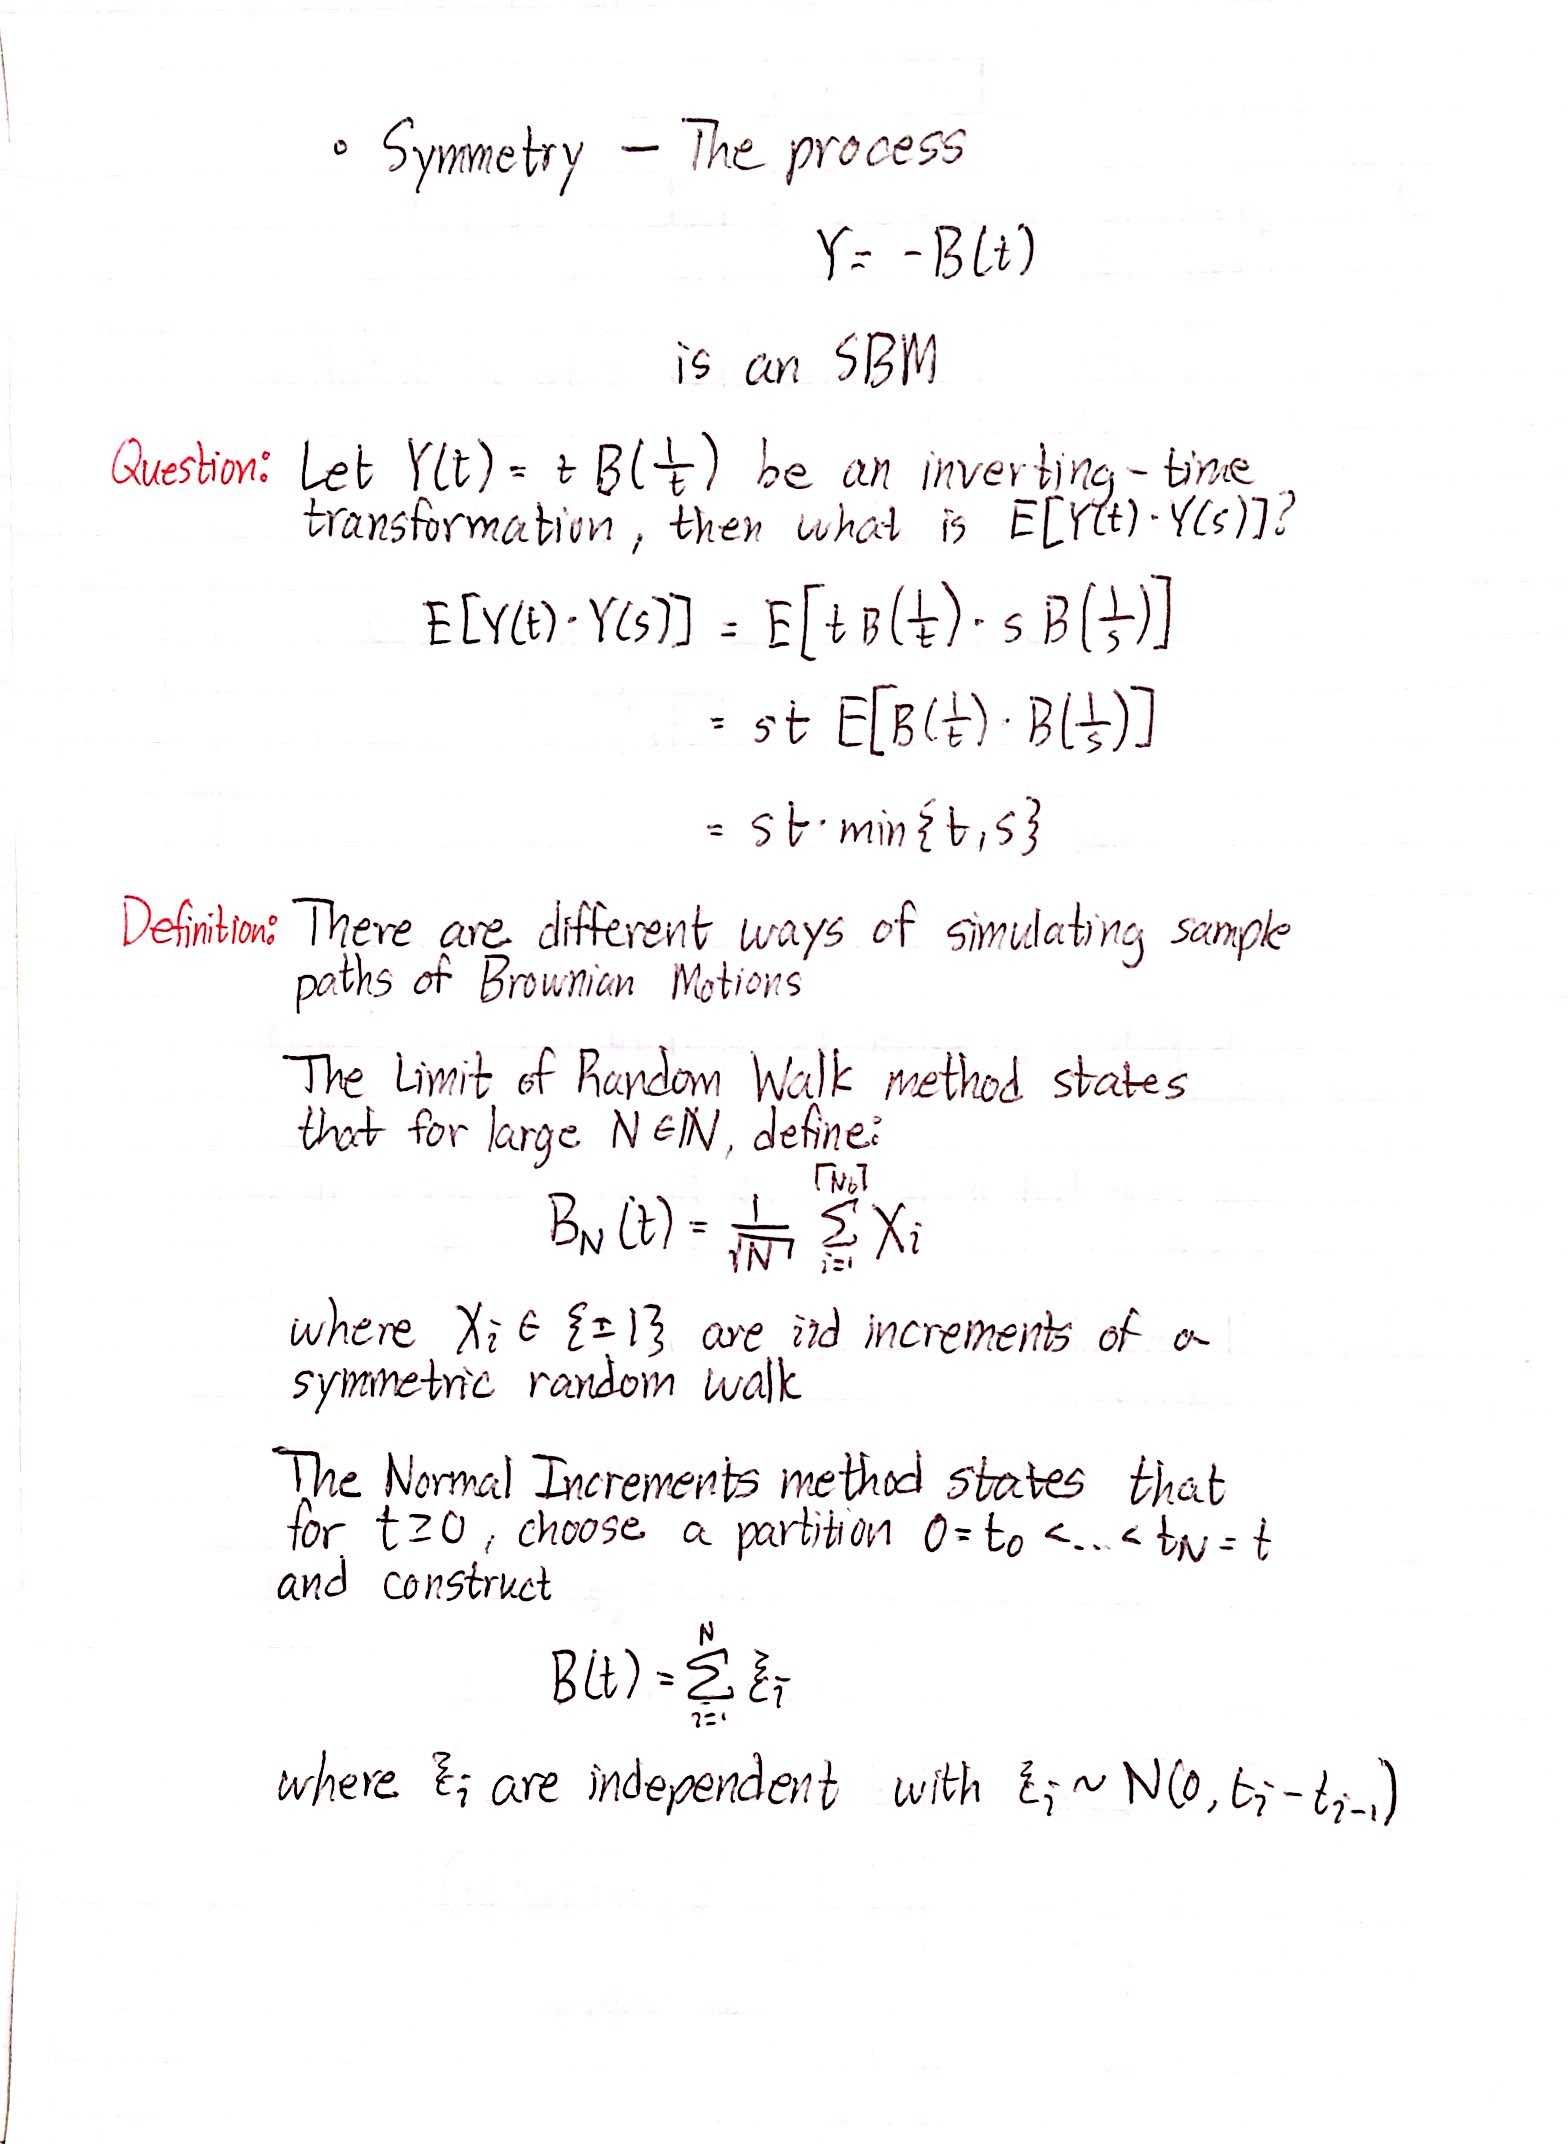 • Symmetry — The process
Y = -B(t)
is an SBM
Question: Let Y(t) = t B(1/t) be an inverting-time
transformation, then what is E[Y(t)·Y(s)]?
E[Y(t)·Y(s)] = E[t B(1/t)·s B(1/s)]
= st E[B(1/t)·B(1/s)]
= st·min{t,s}
Definition: There are different ways of simulating sample
paths of Brownian Motions
The Limit of Random Walk method states
that for large N∈ℕ, define:
B_N(t) = 1/√N ∑_{i=1}^{⌈Nt⌉} X_i
where X_i ∈ {±1} are iid increments of a
symmetric random walk
The Normal Increments method states that
for t≥0, choose a partition 0=t_0 <...< t_N = t
and construct
B(t) = ∑_{i=1}^{N} ξ_i
where ξ_i are independent with ξ_i ~ N(0, t_i - t_{i-1})